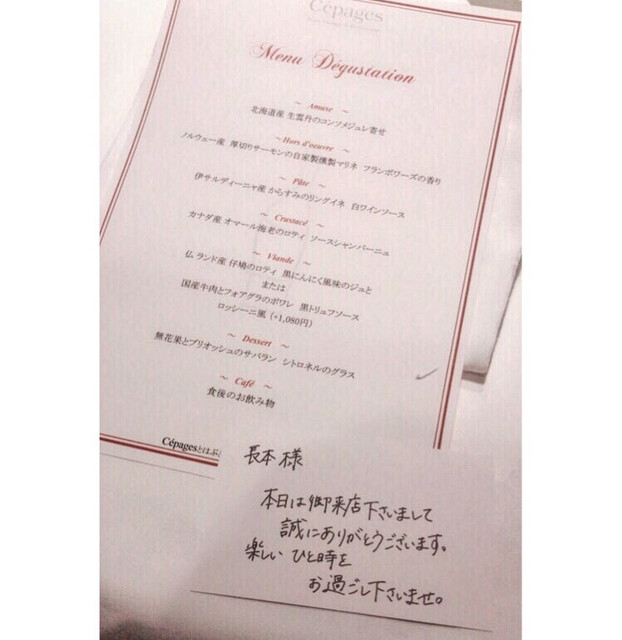 Cépages
Menu Dégustation
～ Amuse ～
北海道産 生雲丹のコンソメジュレ寄せ
～ Hors d'oeuvre ～
ノルウェー産 厚切りサーモンの自家製燻製マリネ フランボワーズの香り
～ Pâte ～
伊サルディーニャ産 からすみのリングイネ 白ワインソース
～ Crustacé ～
カナダ産 オマール海老のロティ ソースシャンパーニュ
～ Viande ～
仏 ランド産 仔鳩のロティ 黒にんにく風味のジュと
または
国産牛肉とフォアグラのポワレ 黒トリュフソース
ロッシーニ風 (+1,080円)
～ Dessert ～
無花果とブリオッシュのサバラン シトロネルのグラス
～ Café ～
食後のお飲み物
Cépagesとはぶど
長本様
本日は御来店下さいまして
誠にありがとうございます。
楽しい ひと時を
お過ごし下さいませ。